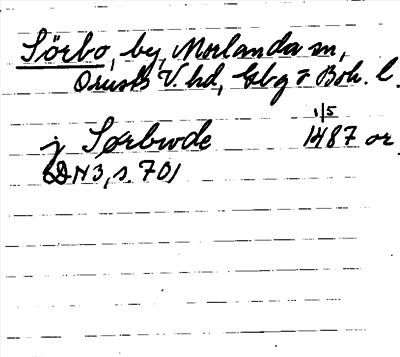 Sörbo, by, Morlanda sn,
Orusts V. hd, Gbg o Boh. l.
1/5
j Sørbwde 1487 or
DN 3, s. 701